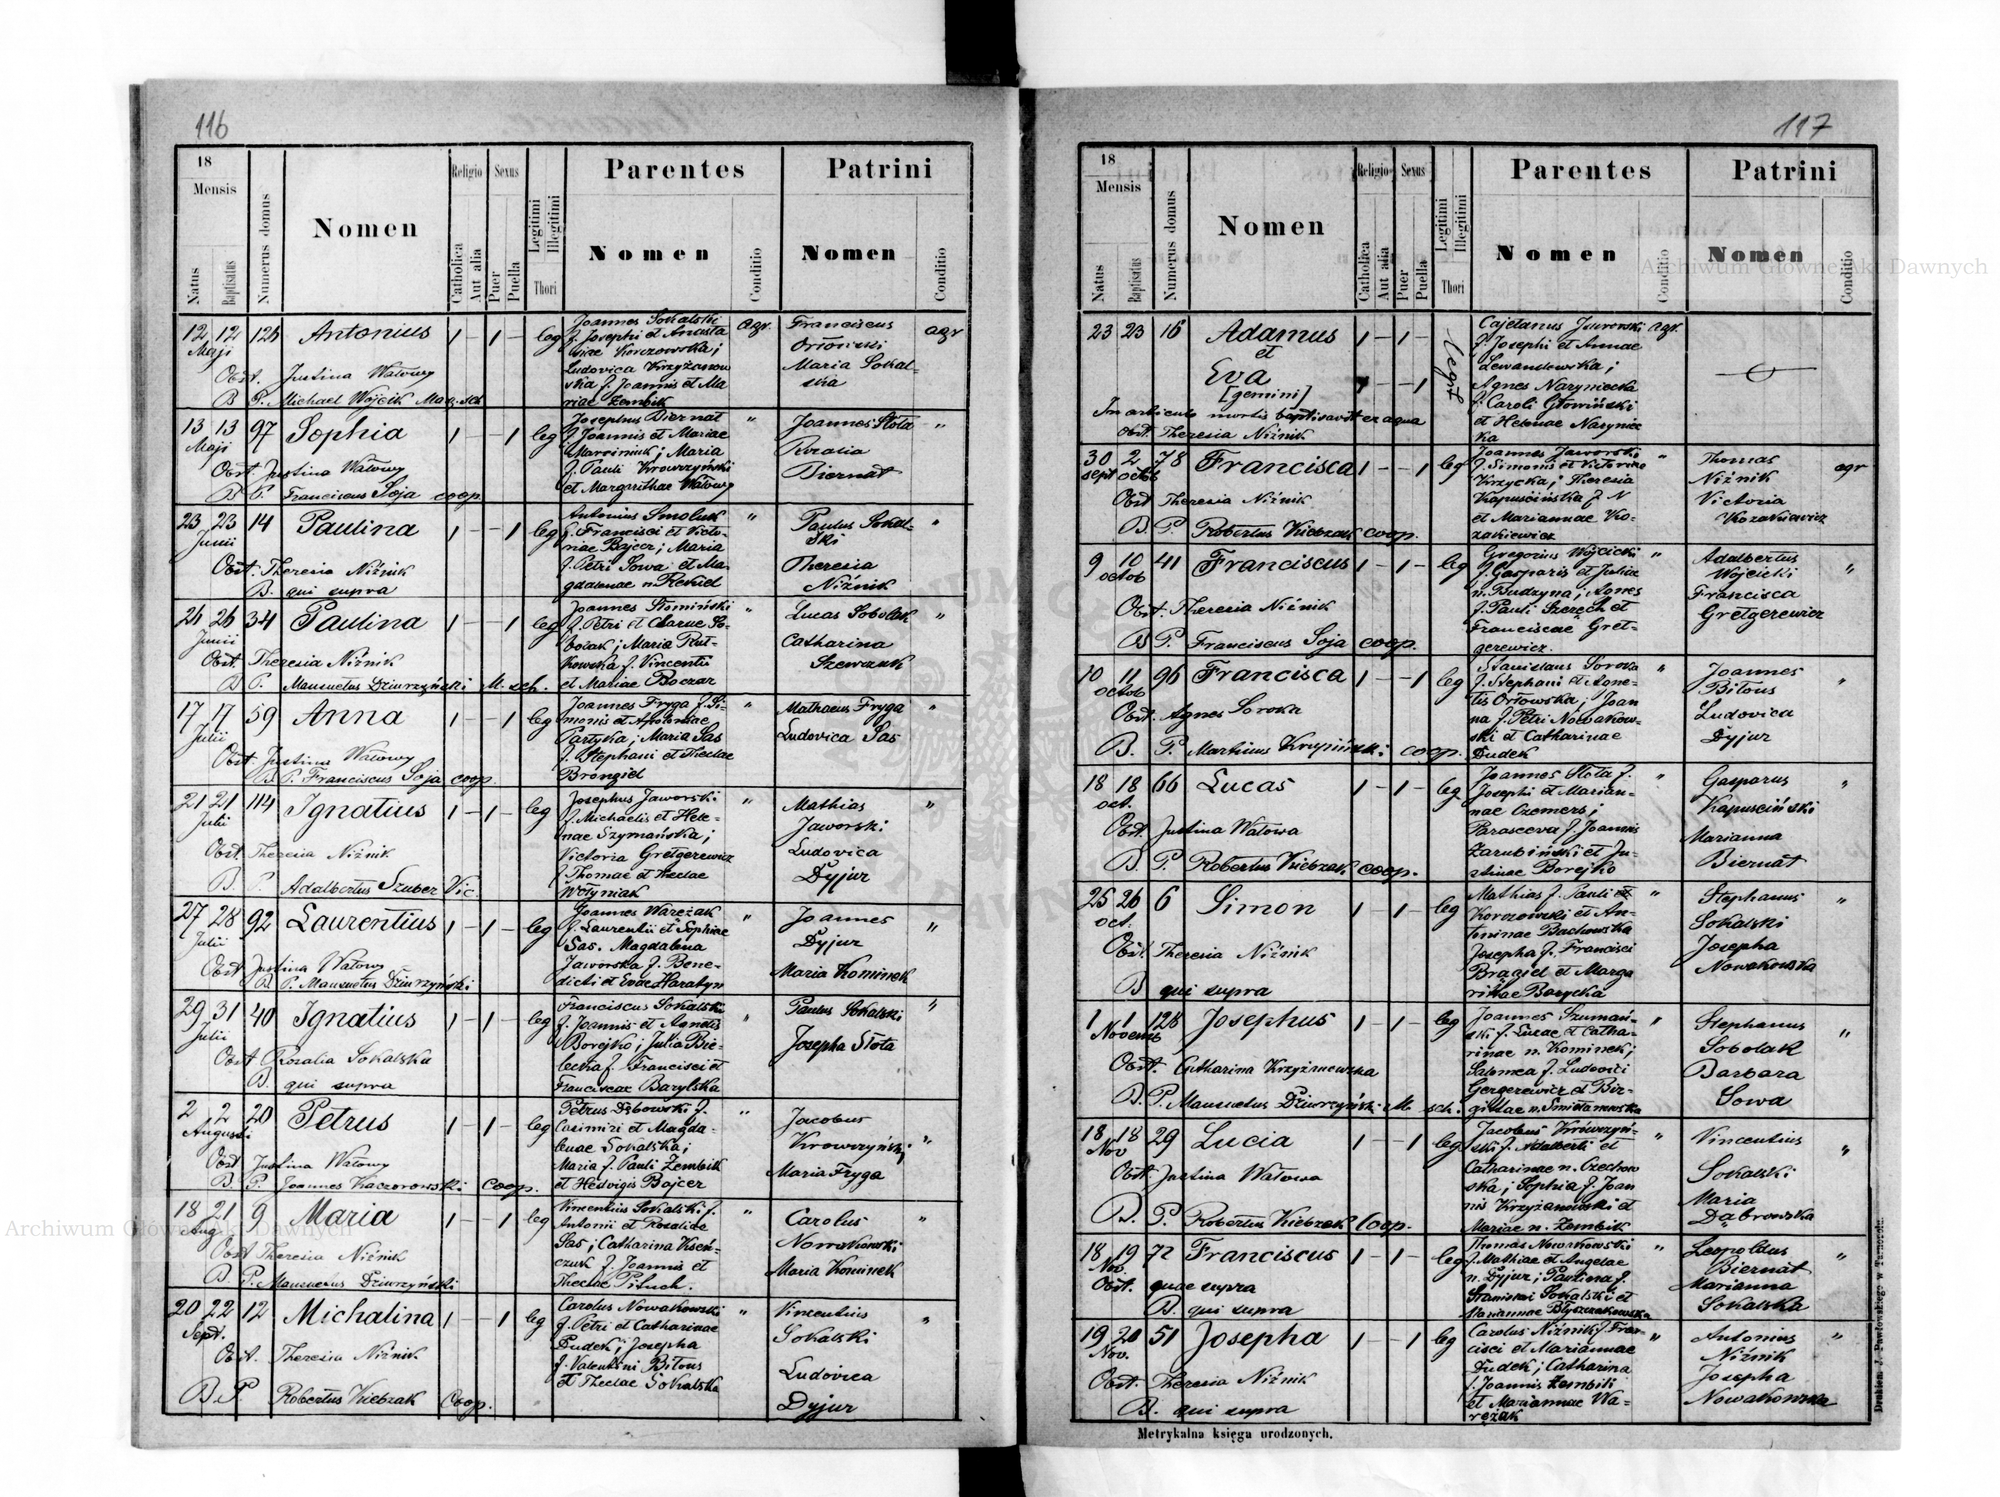 116
18
Mensis
Natus
Baptisatus
Numerus domus
Nomen
Religio
Catholica
Aut alia
Sexus
Puer
Puella
Legitimi
Illegitimi
Thori
Parentes
Nomen
Conditio
Patrini
Nomen
Conditio
12 12 126 Antonius 1 – 1 – leg
Maji
Obst. Justina Watowy
B. P. Michael Wójcik Mag. sch
Joannes Sokalski agr.
f. Josephi et Anasta
siae Korczowska;
Ludovica Krzyżanow
ska f. Joannis et Ma
riae Zembik
Franciscus agr
Orłowski
Maria Sokal-
ska
13 13 97 Sophia 1 – – 1 leg
Maji
Obst. Justina Watowy
B P. Franciscus Soja coop.
Josephus Biernat "
f Joannis et Mariae
Marciniuk; Maria
f. Pauli Krowrzyński
et Margarithae Watowy
Joannes Stota "
Rozalia
Biernat
23 23 14 Paulina 1 – – 1 leg
Junii
Obst. Theresia Niźnik
B. qui supra
Antonius Smoluk "
f. Francisci et Victo-
riae Bajcer; Maria
f. Petri Sowa et Ma
gdalenae n Rekiel
Paulus Sokal- "
ski
Theresia
Niźnik
26 26 34 Paulina 1 – – 1 leg
Junii
Obst. Theresia Niźnik
B P. Mansuetus Dziurzyński M. sch.
Joannes Stomiński "
f. Petri et Clarae So-
bolak; Maria Rut-
kowska f. Vincentii
et Mariae Boczar
Lucas Sobolak "
Catharina
Szewczuk
17 17 59 Anna 1 – – 1 leg
Julii
Obst. Justina Watowy
B P. Franciscus Soja coop.
Joannes Fryga f. Si- "
monis et Apoloniae
Partyka; Maria Sas
f. Stephani et Theclae
Brongiel
Mathaeus Fryga "
Ludovica Sas
21 21 114 Ignatius 1 – 1 – leg
Julii
Obst. Theresia Niźnik
B. P. Adalbertus Szuber Vic.
Josephus Jaworski "
f. Michaelis et Hele-
nae Szymańska;
Victoria Gretgerewicz
f Thomae et Theclae
Wołyniak
Mathias "
Jaworski
Ludovica
Dyjur
27 28 92 Laurentius 1 – 1 – leg
Julii
Obst Justina Watowy
B P. Mansuetus Dziurzyński
Joannes Wareżak "
f. Laurentii et Sophiae
Sas. Magdalena
Jaworska f. Bene-
dicti et Evae Haratyn
Joannes "
Dyjur
Maria Kominek
29 31 40 Ignatius 1 – 1 – leg
Julii
Obst Rozalia Sokalska
B. qui supra
Franciscus Sokalski "
f. Joannis et Agnetis
Borejko; Julia Bie-
lecka f. Francisci et
Franciscae Barylska
Paulus Sokalski "
Josepha Stota
2 2 20 Petrus 1 – 1 – leg
Augusti
Obst Justina Watowy
B P. Joannes Kaczorowski coop.
Petrus Dąbowski f. "
Casimiri et Magda-
lenae Sokalska;
Maria f. Pauli Zembik
et Hedvigis Bajcer
Jacobus
Krowrzyński "
Maria Fryga
18 21 9 Maria 1 – – 1 leg
Aug
Obst Theresia Niźnik
B. P. Mansuetus Dziurzyński
Vincentius Sokalski f. "
Antonii et Rosaliae
Sas; Catharina Ksen-
czuk f. Joannis et
Theclae Pituch.
Carolus "
Nowakowski
Maria Kominek
20 22 12 Michalina 1 – – 1 leg
Sept.
Obst. Theresia Niźnik
B. P. Robertus Kiebzak Coop.
Carolus Nowakowski "
f. Petri et Catharinae
Dudek; Josepha
f. Valentini Bitous
et Theclae Sokalska
Vincentius
Sokalski "
Ludovica
Dyjur
117
18
Mensis
Natus
Baptisatus
Numerus domus
Nomen
Religio
Catholica
Aut alia
Sexus
Puer
Puella
Legitimi
Illegitimi
Thori
Parentes
Nomen
Conditio
Patrini
Nomen
Conditio
23 23 16 Adamus 1 – 1 –
et
Eva – – 1
[gemini]
In articulo mortis baptisavit ex aqua
Obst. Theresia Niźnik
Cajetanus Jaworski agr.
f. Josephi et Annae
Lewandowska;
Agnes Naryniecka
f. Caroli Głowiński
et Helenae Naryniec
ka
30 2 78 Francisca 1 – – 1 leg
Sept Octob
Obst Theresia Niźnik
B P. Robertus Kiebzak coop.
Joannes Jaworski "
f. Simonis et Victoriae
Krzycka; Theresia
Kapuścińska f. N
et Mariannae Ko-
zakiewicz
Thomas agr
Niźnik
Victoria
Kozakiewicz
9 10 41 Franciscus 1 – 1 – leg
octob
Obst. Theresia Niźnik
B P. Franciscus Soja coop.
Gregorius Wójcicki "
f. Gasparis et Juliae
n. Budzyna; Agnes
f. Pauli Szerech et
Franciscae Gret-
gerewicz.
Adalbertus
Wójcicki "
Francisca
Gretgerewicz
10 11 96 Francisca 1 – – 1 leg
octob
Obst. Agnes Soroka
B. P. Martinus Krupiński coop.
Stanislaus Soroka "
f. Stephani et Agne-
tis Orłowska; Joan
na f. Petri Nowakow-
ski et Catharinae
Dudek
Joannes "
Bitous
Ludovica
Dyjur
18 18 66 Lucas 1 – 1 – leg
oct.
Obst. Justina Watowa
B. P. Robertus Kiebzak coop.
Joannes Stota f. "
Josephi et Marian-
nae Czemers;
Parasceva f. Joannis
Zarubiński et Ju-
stinae Borejko
Gasparus "
Kapuściński
Marianna
Biernat
25 26 6 Simon 1 – 1 – leg
oct.
Obst Theresia Niźnik
B qui supra
Mathias f. Pauli "
Korczowski et An-
toninae Bachowska
Josepha f. Francisci
Brągiel et Marga
rithae Barycka
Stephanus "
Sokalski
Josepha
Nowakowska
1 1 128 Josephus 1 – 1 – leg
Novemb
Obst. Catharina Krzyżanowska
B. P. Mansuetus Dziurzyński M sch.
Joannes Szumań- "
ski f. Lucae et Catha-
rinae n. Kominek;
Salomea f. Ludovici
Gergerewicz et Bir-
gittae n. Śmietanowska
Stephanus "
Sobolak
Barbara
Sowa
18 18 29 Lucia 1 – – 1 leg
Nov
Obst Justina Watowa
B. P. Robertus Kiebzak Coop.
Jacobus Krówrzyń- "
ski f. Adalberti et
Catharinae n. Czechow
ska; Sophia f. Joan
nis Krzyżanowski et
Mariae n. Zembik
Vincentius "
Sokalski
Maria
Dąbrowska
18 19 72 Franciscus 1 – 1 – leg
Nov.
Obst. quae supra
B. qui supra
Thomas Nowakowski "
f. Mathiae et Angelae
n. Dyjur; Paulina f.
Stanislai Sokalski et
Mariannae Błyszczakowska
Leopoldus "
Biernat
Marianna
Sokalska
19 20 51 Josepha 1 – – 1 leg
Nov.
Obst. Theresia Niźnik
B. qui supra
Carolus Niźnik f. Fran- "
cisci et Mariannae
Dudek; Catharina
f. Joannis Zembik
et Mariannae Wa-
rężak
Antonius "
Niźnik
Josepha
Nowakowska
Metrykalna księga urodzonych.
Drukiem J. Pawłowskiego w Tarnopolu.
Archiwum Główne Akt Dawnych
Archiwum Główne Akt Dawnych